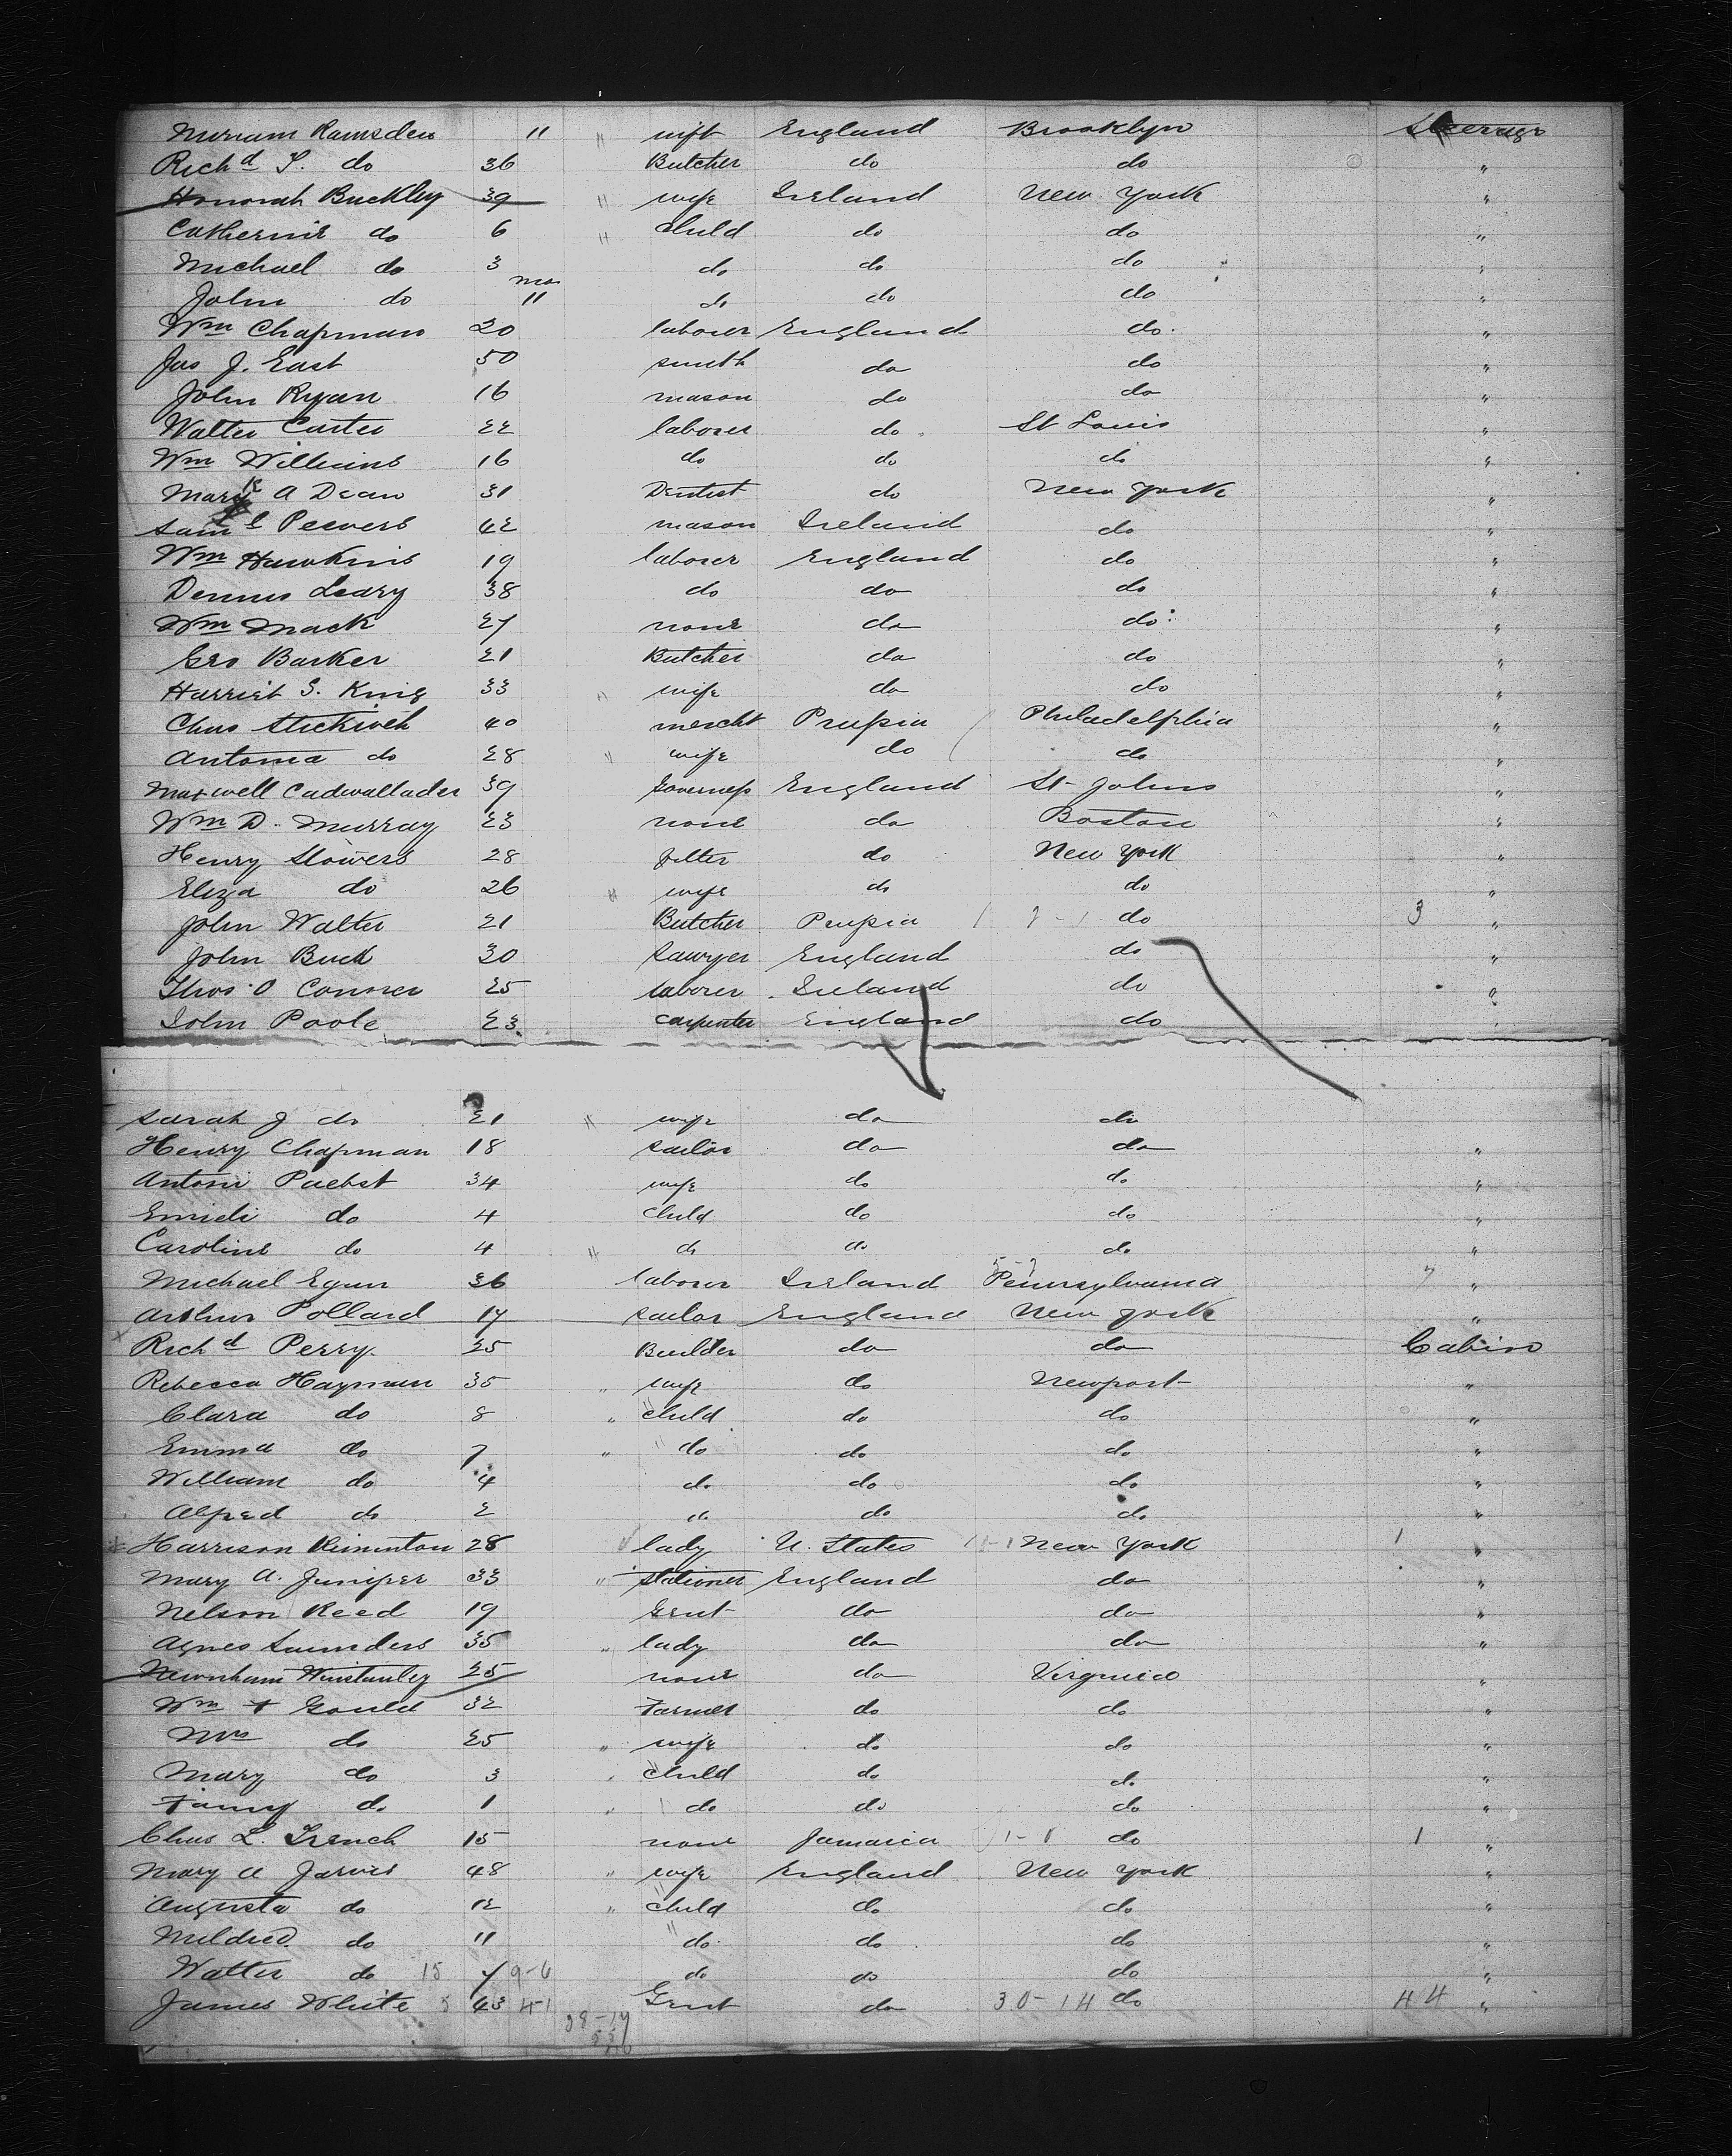 Miriam Ramsden 11 " wift England Brooklyn Steerage
Richd S. do 36 Butcher do do "
Honorah Buckley 39 " wife Ireland New York "
Catherine do 6 " Child do do "
Michael do 3 do do do "
John do mos 11 do do do "
Wm Chapman 20 laborer England do "
Jas J. East 50 smith do do "
John Ryan 16 mason do do "
Walter Carter 22 laborer do St Louis "
Wm Williams 16 do do do "
Mark A Dean 31 Dentist do New York "
Saml Peevers 42 mason Ireland do "
Wm Hawkins 19 laborer England do "
Dennis Leary 38 do do do "
Wm Mack 27 none do do "
Geo Barker 21 Butcher do do "
Harriet S. King 33 " wife do do "
Chas 40 mercht Prussia Philadelphia "
Antonia do 28 " wife do do "
Maxwell Cadwallader 39 Governess England St Johns "
Wm D. Murray 23 none do Boston "
Henry Stowers 28 fitter do New York "
Eliza do 26 " wife do do "
John Walter 21 Butcher Prussia do 3 "
John Buck 30 Sawyer England do "
Thos O Conner 25 laborer Ireland do "
John Poole 23 carpenter England do "
Sarah J do 21 " wife do do
Henry Chapman 18 sailor do do "
Antoni Paebst 34 wife do do "
Emidi do 4 Child do do "
Caroline do 4 " do do do "
Michael Egan 36 laborer Ireland Pennsylvania "
Arthur Pollard 17 sailor England New York "
Richd Perry 25 Builder do do Cabin
Rebecca Hayman 35 " wife do Newport "
Clara do 8 " child do do "
Emma do 7 " do do do "
William do 4 do do do "
Alfred do 2 do do do "
Harrison Riminton 28 lady U. States 1-1 New York 1 "
Mary A. Juniper 33 " Stationer England do "
Nelson Reed 19 Gent do do "
Agnes Saunders 35 " lady do do "
Newnham Winstanley 25 none do Virginia "
Wm T Gould 32 Farmer do do "
Mrs do 25 " wife do do "
Mary do 3 " child do do "
Fanny do 1 " do do do "
Chas L. French 15 none Jamaica 1-1 do 1 "
Mary A Jarvis 48 " wife England New York "
Augusta do 12 " child do do "
Mildred do 11 " do do do "
Walter do 15 7 9-6 do do do "
James White 5 43 4-1 Gent do 30-14 do 44 "